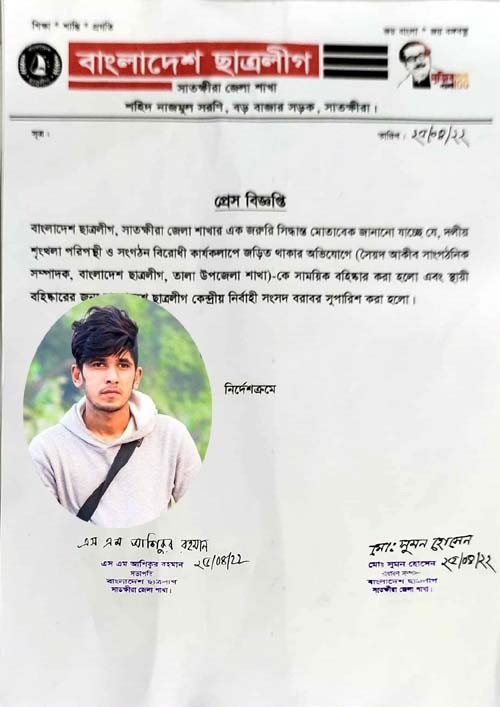 শিক্ষা * শান্তি * প্রগতি
জয় বাংলা * জয় বঙ্গবন্ধু
বাংলাদেশ ছাত্রলীগ
সাতক্ষীরা জেলা শাখা
শহিদ নাজমুল সরণি, বড় বাজার সড়ক, সাতক্ষীরা।
সূত্র :
তারিখ : ২৫/০৪/২২
প্রেস বিজ্ঞপ্তি
বাংলাদেশ ছাত্রলীগ, সাতক্ষীরা জেলা শাখার এক জরুরি সিদ্ধান্ত মোতাবেক জানানো যাচ্ছে যে, দলীয়
শৃংখলা পরিপন্থী ও সংগঠন বিরোধী কার্যকলাপে জড়িত থাকার অভিযোগে (সৈয়দ আকীব সাংগঠনিক
সম্পাদক, বাংলাদেশ ছাত্রলীগ, তালা উপজেলা শাখা)-কে সাময়িক বহিষ্কার করা হলো এবং স্থায়ী
বহিষ্কারের ছাত্রলীগ কেন্দ্রীয় নির্বাহী সংসদ বরাবর সুপারিশ করা হলো।
নির্দেশক্রমে
এস এম আশিকুর রহমান
২৫/০৪/২২
এস এম আশিকুর রহমান
সভাপতি
বাংলাদেশ ছাত্রলীগ
সাতক্ষীরা জেলা শাখা।
মোঃ সুমন হোসেন
২৫/০৪/২২
মোঃ সুমন হোসেন
বাংলাদেশ ছাত্রলীগ
সাতক্ষীরা জেলা শাখা।